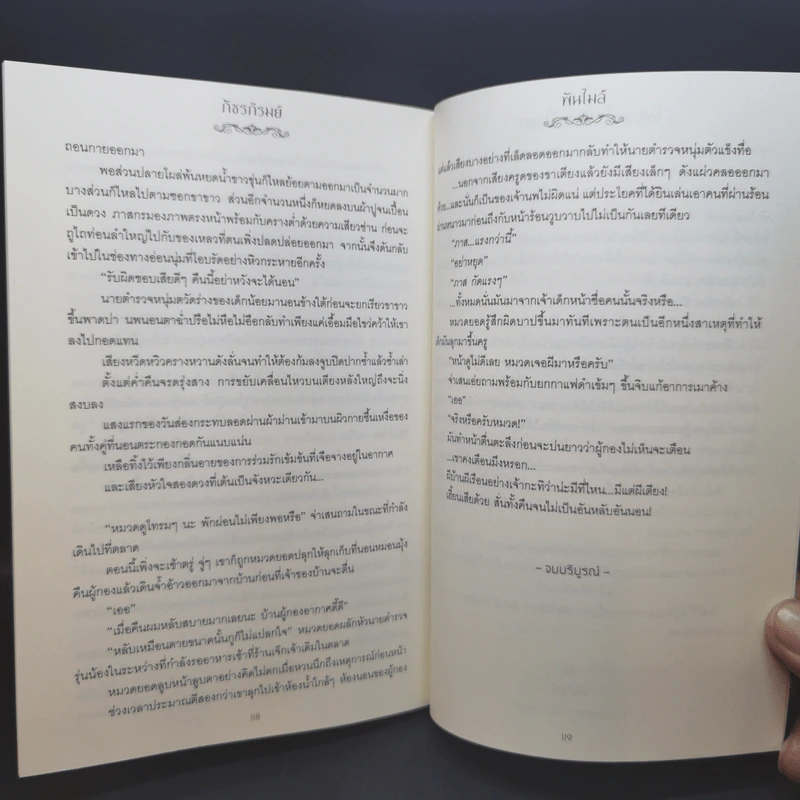 ภัชรภิรมย์
ถอนกายออกมา
พอส่วนปลายโผล่พ้นหยดน้ำขาวขุ่นก็ไหลย้อยตามออกมาเป็นจำนวนมาก
บางส่วนก็ไหลไปตามซอกขาขาว ส่วนอีกจำนวนหนึ่งก็หยดลงบนผ้าปูจนเปื้อน
เป็นดวง ภาสกรมองภาพตรงหน้าพร้อมกับครางต่ำด้วยความเสียวซ่าน ก่อนจะ
ถูไถท่อนลำใหญ่ไปกับของเหลวที่ตนเพิ่งปลดปล่อยออกมา จากนั้นจึงดันกลับ
เข้าไปในช่องทางอ่อนนุ่มที่โอบรัดอย่างหิวกระหายอีกครั้ง
“รับผิดชอบเสียดีๆ คืนนี้อย่าหวังจะได้นอน”
นายตำรวจหนุ่มตวัดร่างของเด็กน้อยมานอนข้างใต้ก่อนจะยกเรียวขาขาว
ขึ้นพาดบ่า นพนอนตาฉ่ำปรือไม่หือไม่อือกลับทำเพียงแค่เอื้อมมือไขว่คว้าให้เขา
ลงไปกอดแทน
เสียงหวีดหวิวครางหวานดังลั่นจนทำให้ต้องก้มลงจูบปิดปากซ้ำแล้วซ้ำเล่า
ตั้งแต่ค่ำคืนจรดรุ่งสาง การขยับเคลื่อนไหวบนเตียงหลังใหญ่ถึงจะนิ่ง
สงบลง
แสงแรกของวันส่องกระทบลอดผ่านผ้าม่านเข้ามาบนผิวกายชื้นเหงื่อของ
คนทั้งคู่ที่นอนตระกองกอดกันแนบแน่น
เหลือทิ้งไว้เพียงกลิ่นอายของการร่วมรักเข้มข้นที่เจือจางอยู่ในอากาศ
และเสียงหัวใจสองดวงที่เต้นเป็นจังหวะเดียวกัน...
“หมวดดูโทรมๆ นะ พักผ่อนไม่เพียงพอหรือ” จ่าเสนถามในขณะที่กำลัง
เดินไปที่ตลาด
ตอนนี้เพิ่งจะเช้าตรู่ จู่ๆ เขาก็ถูกหมวดยอดปลุกให้ลุกเก็บที่นอนหมอนมุ้ง
คืนผู้กองแล้วเดินจ้ำอ้าวออกมาจากบ้านก่อนที่เจ้าของบ้านจะตื่น
“เออ”
“เมื่อคืนผมหลับสบายมากเลยนะ บ้านผู้กองอากาศดี๊ดี”
“หลับเหมือนตายขนาดนั้นกูก็ไม่แปลกใจ” หมวดยอดผลักหัวนายตำรวจ
รุ่นน้องในระหว่างที่กำลังรออาหารเช้าที่ร้านเจ๊กเจ้าเดิมในตลาด
หมวดยอดลูบหน้าลูบตาอย่างคิดไม่ตกเมื่อหวนนึกถึงเหตุการณ์ก่อนหน้า
ช่วงเวลาประมาณตีสองกว่าเขาลุกไปเข้าห้องน้ำใกล้ๆ ห้องนอนของผู้กอง
118
พันไมล์
แต่แล้วเสียงบางอย่างที่เล็ดลอดออกมากลับทำให้นายตำรวจหนุ่มตัวแข็งทื่อ
...นอกจากเสียงครูดของขาเตียงแล้วยังมีเสียงเล็กๆ ดังแผ่วคลอออกมา
ด้วย...และนั่นก็เป็นของเจ้านพไม่ผิดแน่ แต่ประโยคที่ได้ยินเล่นเอาคนที่ผ่านร้อน
ผ่านหนาวมาก่อนถึงกับหน้าร้อนวูบวาบไปไม่เป็นกันเลยทีเดียว
“ภาส...แรงกว่านี้”
“อย่าหยุด”
“ภาส กัดแรงๆ”
...ทั้งหมดนั่นมันมาจากเจ้าเด็กหน้าซื่อคนนั้นจริงหรือ...
หมวดยอดรู้สึกผิดบาปขึ้นมาทันทีเพราะตนเป็นอีกหนึ่งสาเหตุที่ทำให้
เด็กมันลุกมาขึ้นครู
“หน้าดูไม่ดีเลย หมวดเจอผีมาหรือครับ”
จ่าเสนเอ่ยถามพร้อมกับยกกาแฟดำเข้มๆ ขึ้นจิบแก้อาการเมาค้าง
“เออ”
“จริงหรือครับหมวด!”
มันทำหน้าตื่นตะลึงก่อนจะบ่นยาวว่าผู้กองไม่เห็นจะเตือน
...เขาคงเตือนมึงหรอก...
ผีบ้านผีเรือนอย่างเจ้ากะทิว่าน่ะมีที่ไหน...มีแต่ผีเตียง!
เฮี้ยนเสียด้วย สั่นทั้งคืนจนไม่เป็นอันหลับอันนอน!
– จบบริบูรณ์ –
119